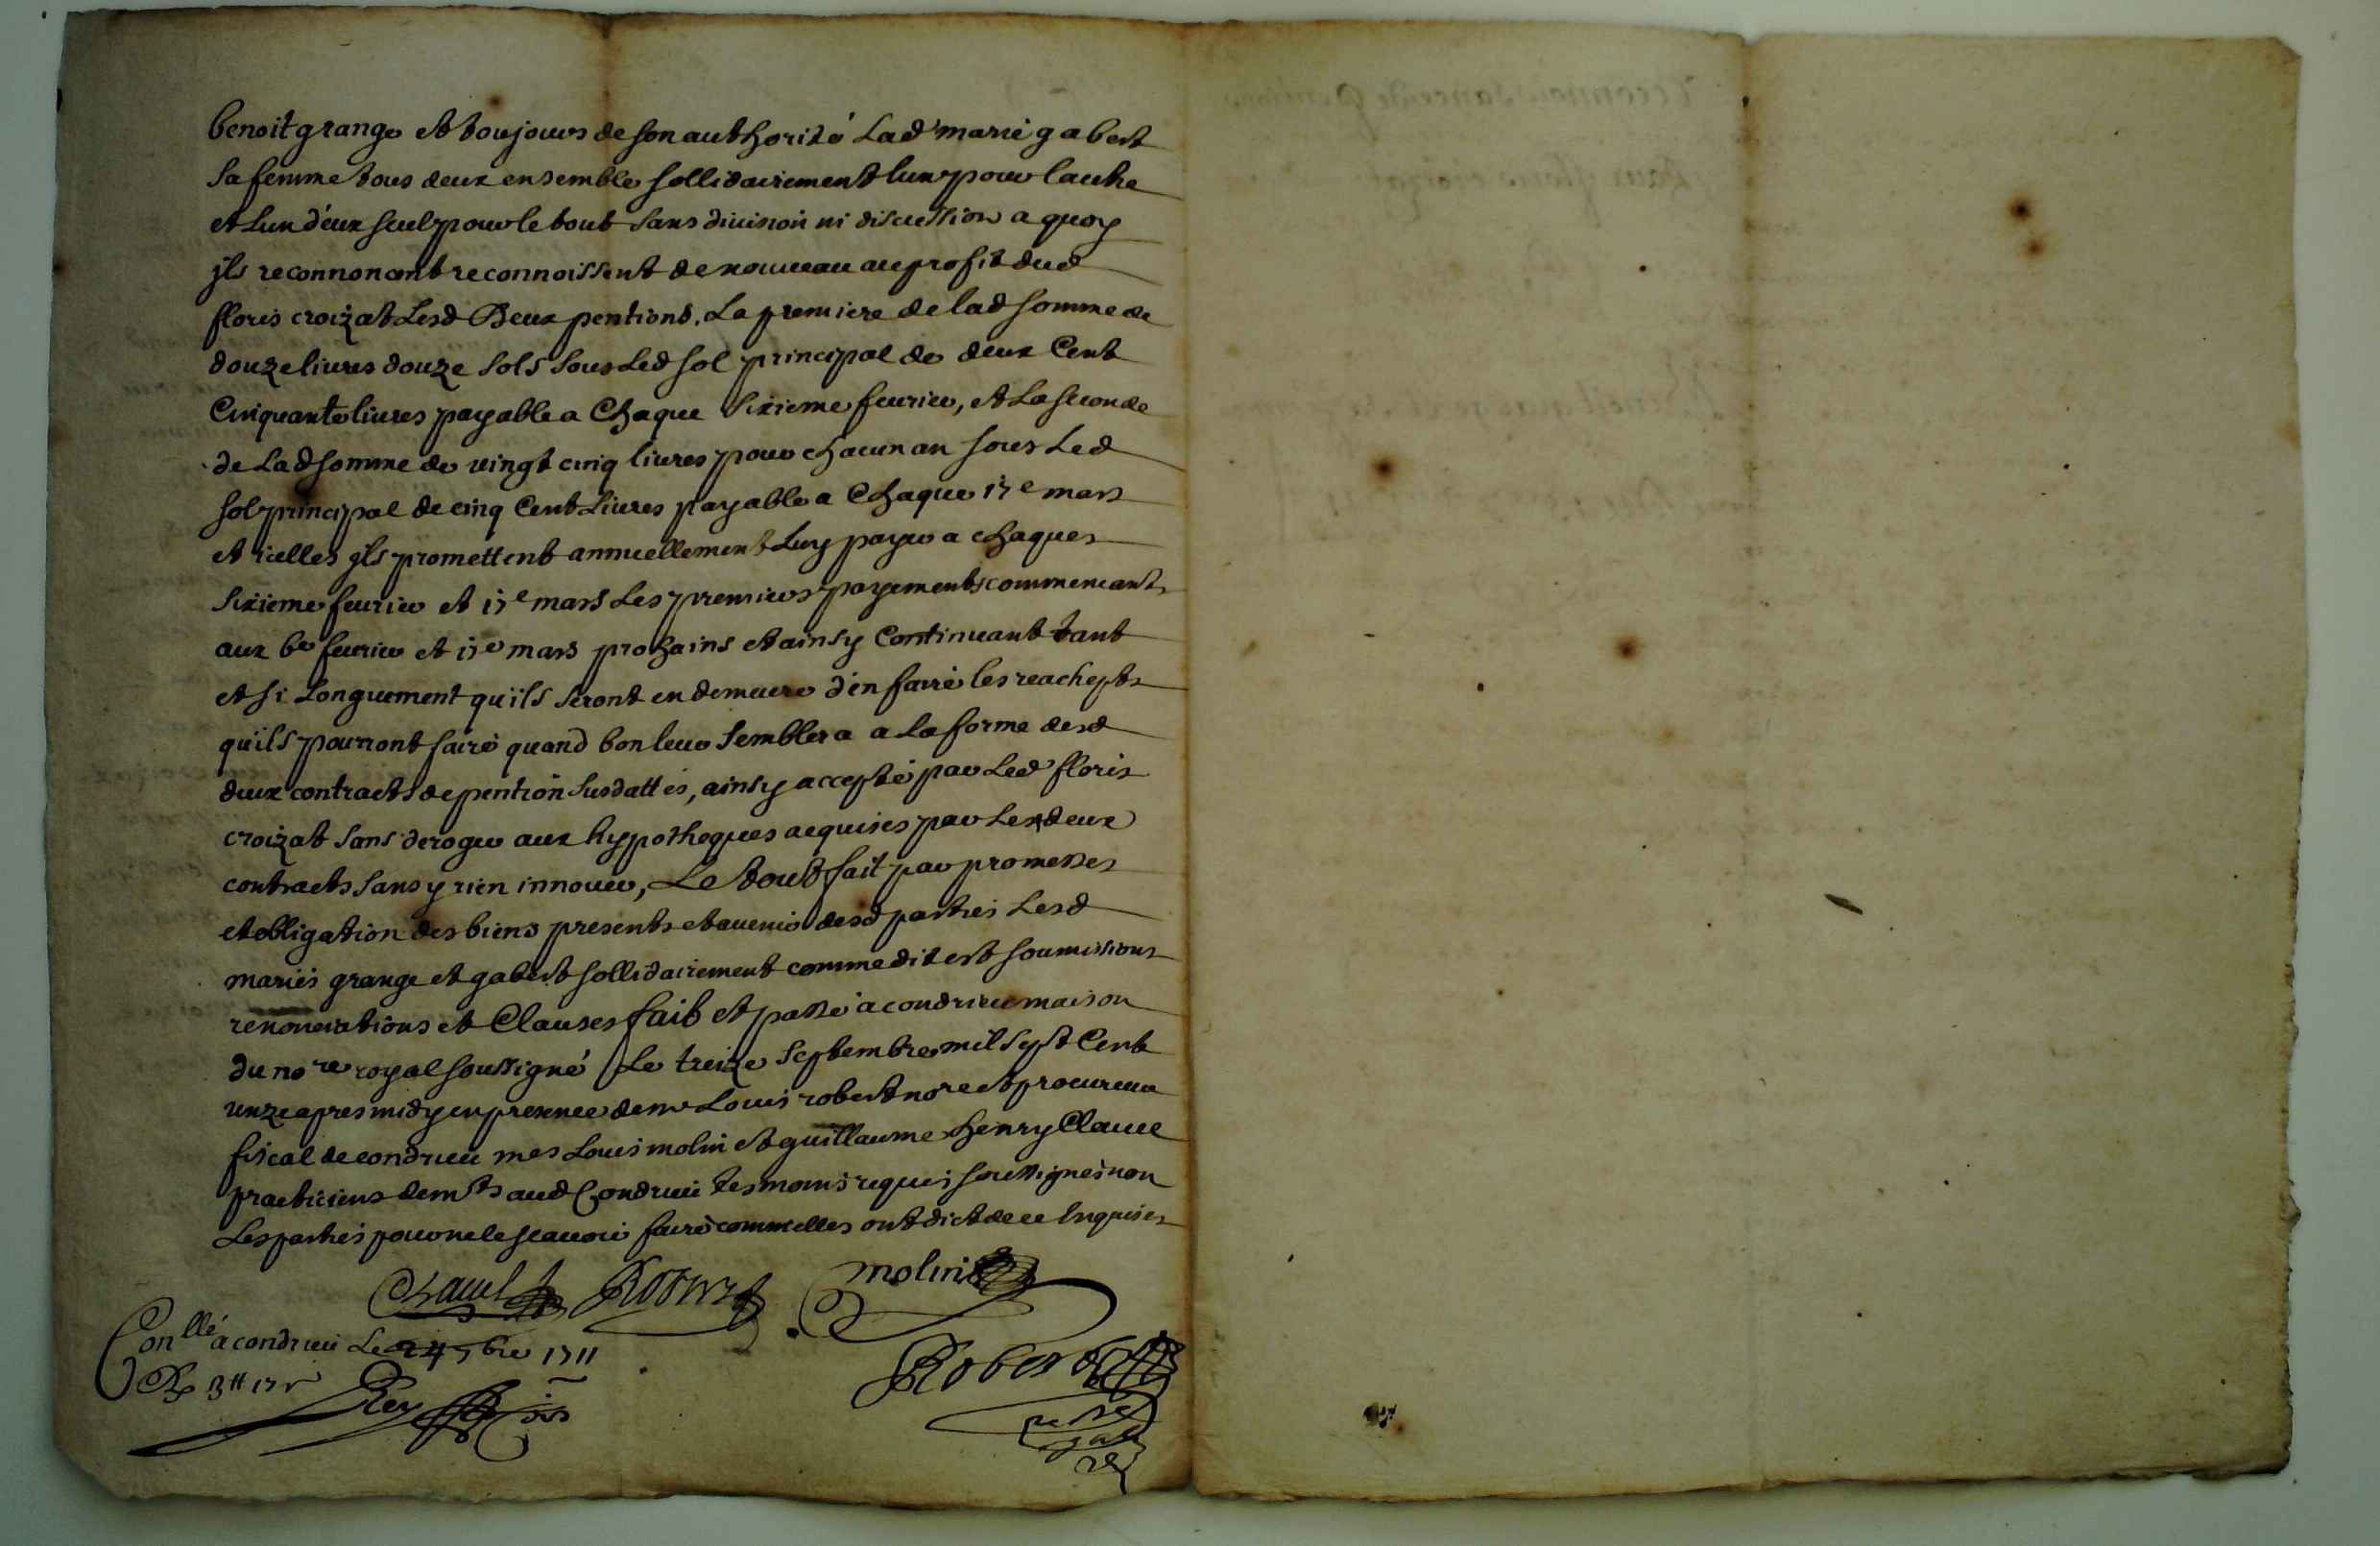 benoit grange et toujours de son authorité Lad marie gabert
sa femme tous deux ensemble sollidairement lun pour lautre
et Lun d'eux seul pour le tout sans division ni discussion a quoy
jls reconnoncent reconnoissent de nouveau au profit dud
floris croizat Lesd Deux pentions, La premiere de lad somme de
douze livres douze sols sous Led sol principal de deux Cent
Cinquante livres payable a Chaque sixieme feurier, et La seconde
de Lad somme de vingt cinq livres pour chacun an sous Led
sol principal de cinq Cent Livres payable a Chaque 17e mars
et icelles jls promettent annuellement Luy payer a chaques
sixieme feurier et 17e mars Les premiers payements commencants
aux 6e feurier et 17e mars prohains et ainsy Continuant tant
et si Longuement qu'ils seront en demeure d'en faire les reachepts
qu'ils pourront faire quand bon leur semblera a La forme desd
deux contracts de pention susdattés, ainsy accepté par Led floris
croizat sans deroger aux hypotheques acquises par Les deux
contracts sans y rien innover, Le tout fait par promesses
et obligation des biens presents et avenir desd parties Lesd
mariés grange et gabert sollidairement comme dit est soumissions
renonciations et Clauses fait et passé a condrieu maison
du nore royal soussigné Le treize septembre mil sept Cent
unze apres midy en presence de me Louis robert nore et procureur
fiscal de condrieu mes Louis molin et guillaume henry Clauel
practiciens demts aud Condrieu tesmoins requis soussignés non
Les parties pour ne le scauoir faire comme elles ont dict de ce Enquises
Clauel Robert molin
Conllé a condrieu Le 24 7bre 1711
Robert
Rey